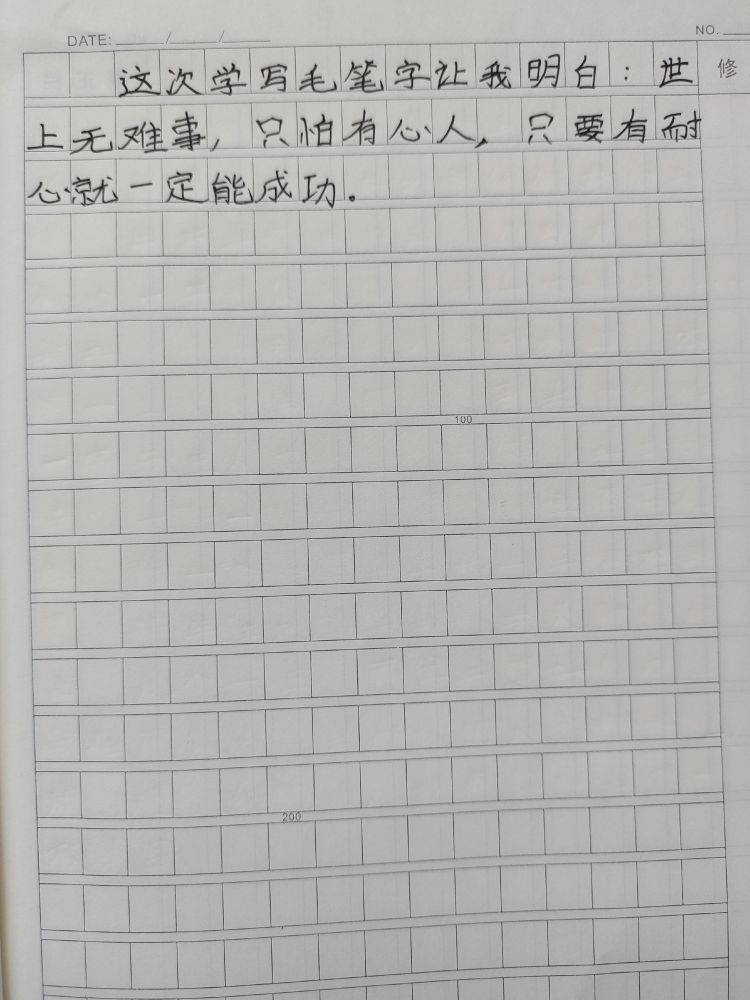 DATE: ____/____/____
NO.
这次学写毛笔字让我明白：世
修
上无难事，只怕有心人，只要有耐
心就一定能成功。
100
200